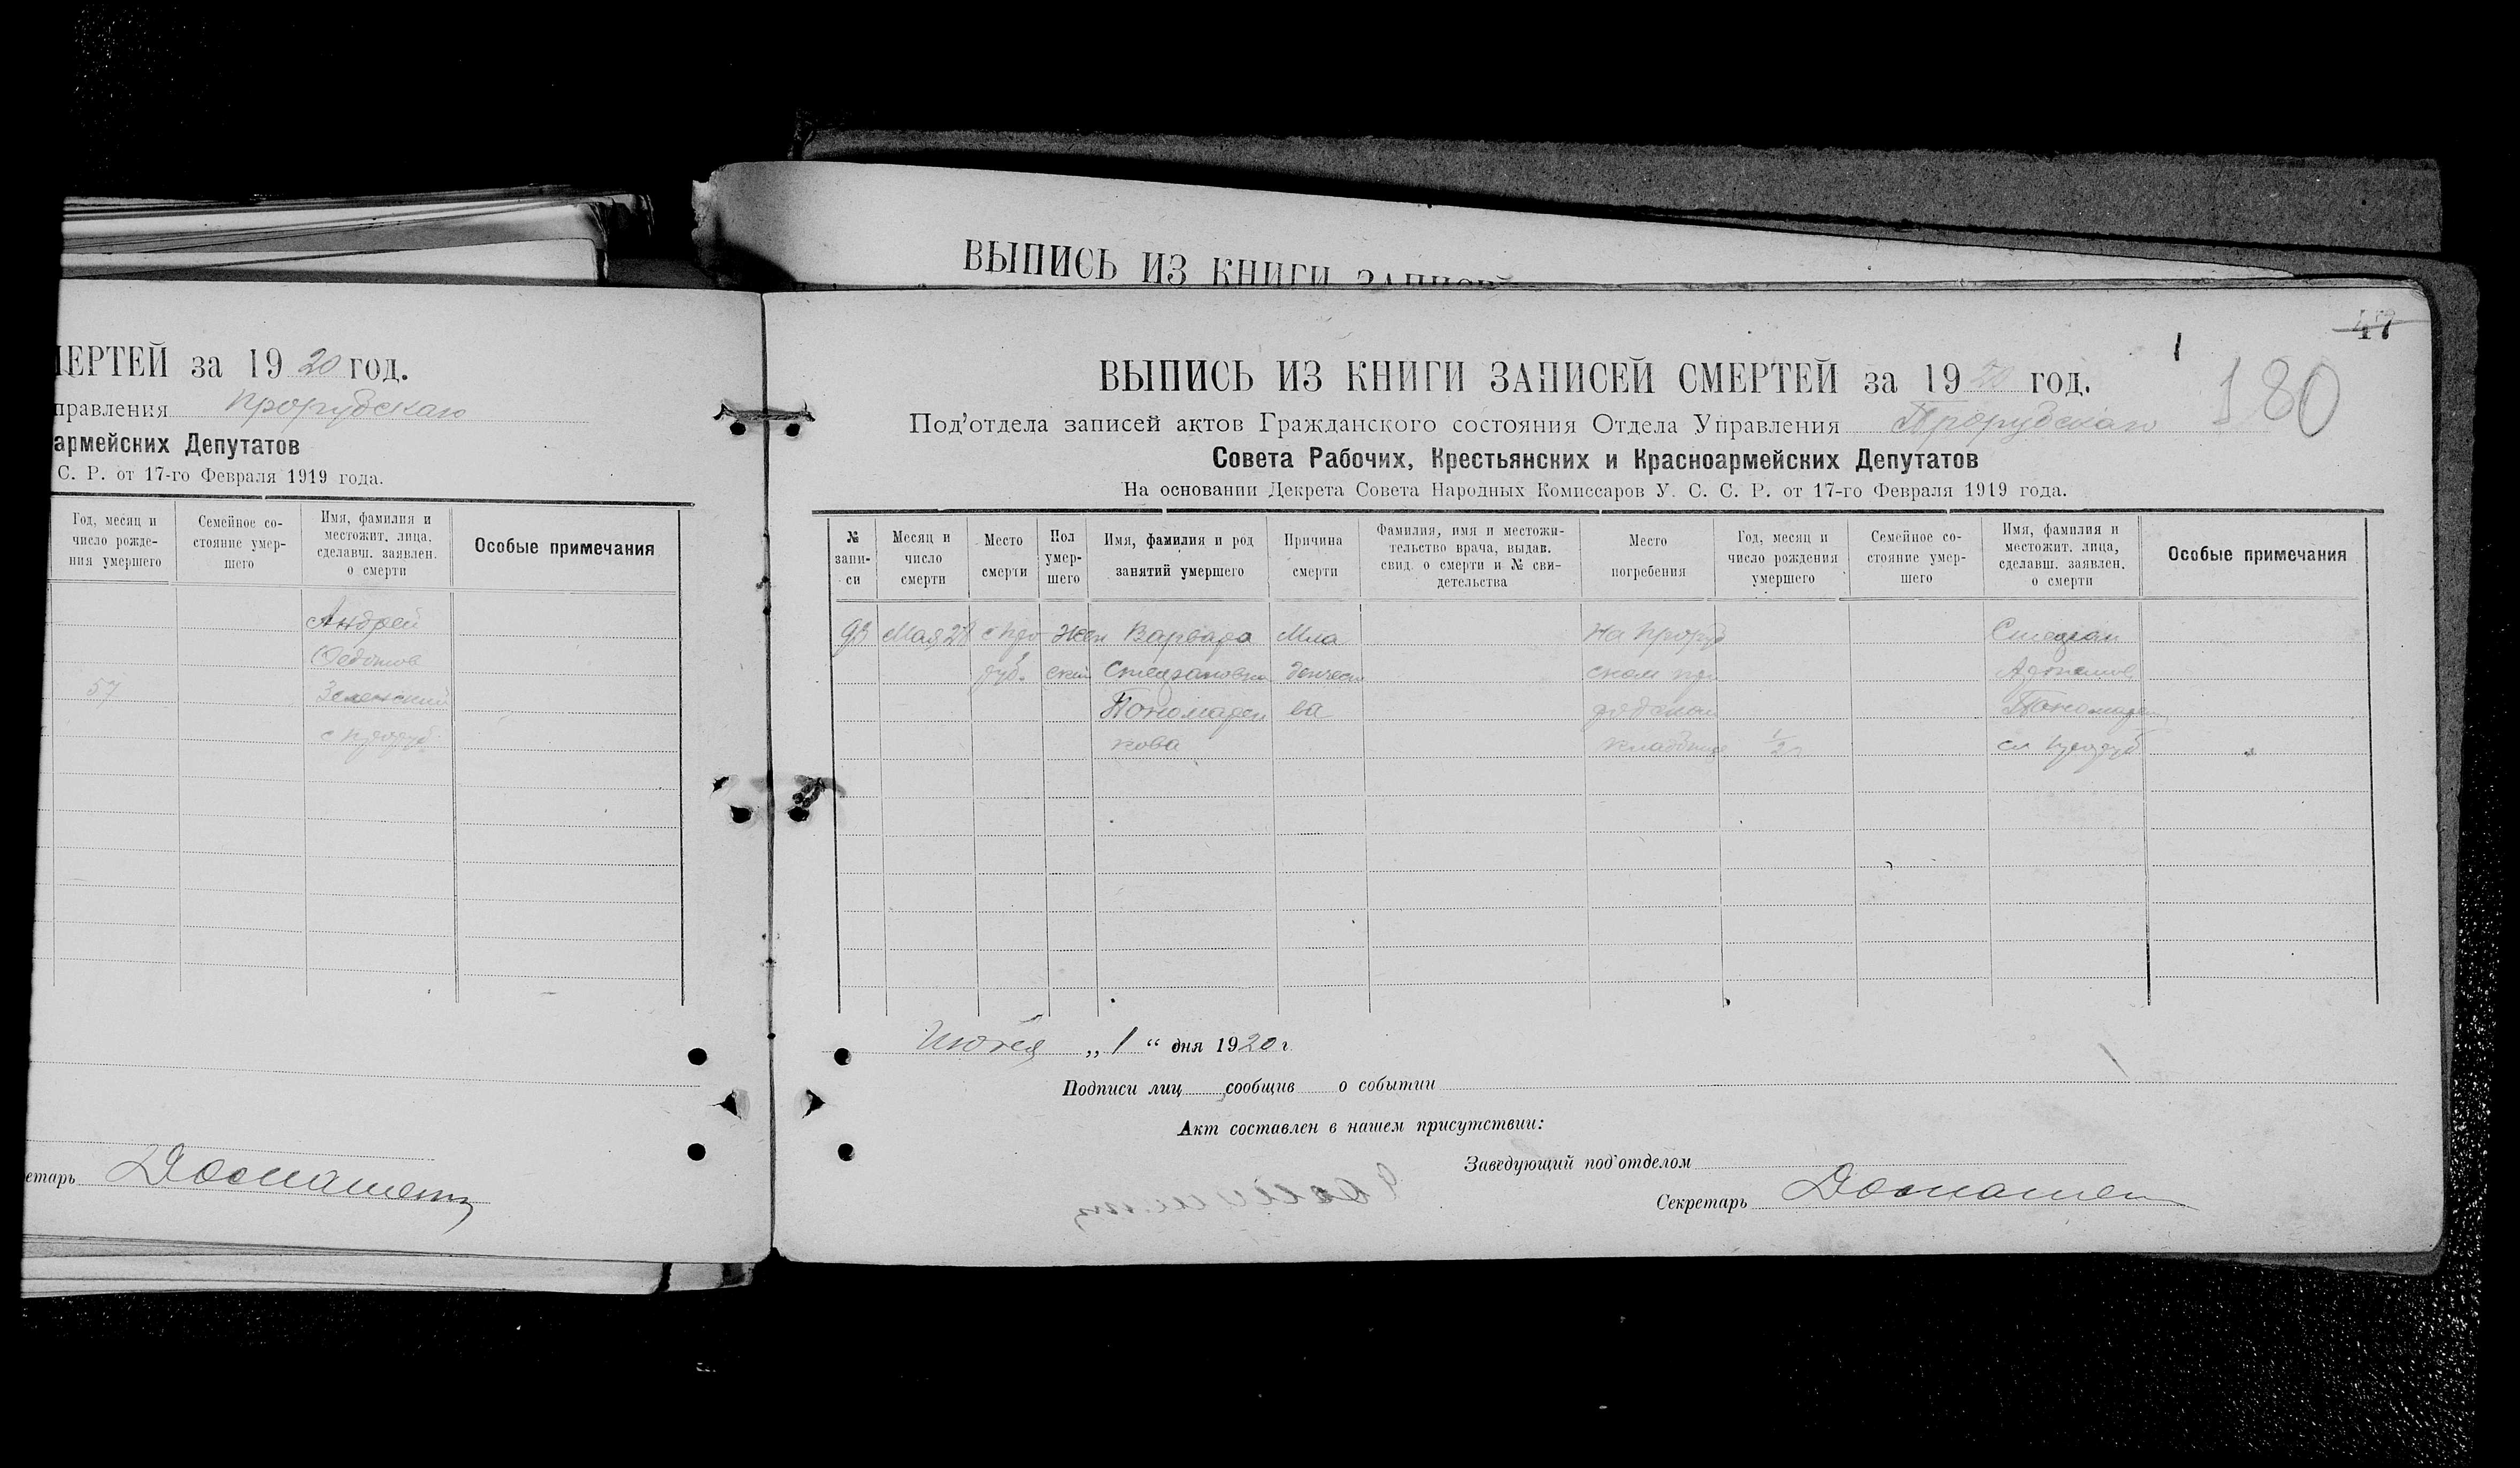 ВЫПИСЬ ИЗ КНИГИ ЗАПИСЕЙ
МЕРТЕЙ за 1920 год.
правления Прорубскаго
армейских Депутатов
С. Р. от 17-го Февраля 1919 года.
Год, месяц и число рожде-ния умершего
Семейное со-стояние умер-шего
Имя, фамилия и местожит. лица, сделавш. заявлен. о смерти
Особые примечания
Андрей
Федотов
57 Зеленский
етарь
47
1
180
ВЫПИСЬ ИЗ КНИГИ ЗАПИСЕЙ СМЕРТЕЙ за 1920 год.
Под'отдела записей актов Гражданского состояния Отдела Управления Прорубскаго
Совета Рабочих, Крестьянских и Красноармейских Депутатов
На основании Декрета Совета Народных Комиссаров У. С. С. Р. от 17-го Февраля 1919 года.
№ запи-си
Месяц и число смерти
Место смерти
Пол умер-шего
Имя, фамилия и род занятий умершего
Причина смерти
Фамилия, имя и местожи-тельство врача, выдав. свид. о смерти и № сви-детельства
Место погребения
Год, месяц и число рождения умершего
Семейное со-стояние умер-шего
Имя, фамилия и местожит. лица, сделавш. заявлен. о смерти
Особые примечания
93 Мая Жен Варвара Мла На Проруб Стефан
ский Стефановна денчест ском
Пономарен ва Пономарен
кова кладбище
Июня „1“ дня 1920 г
Подписи лиц сообщив о событии
Акт составлен в нашем присутствии:
Заведующий под'отделом
Секретарь